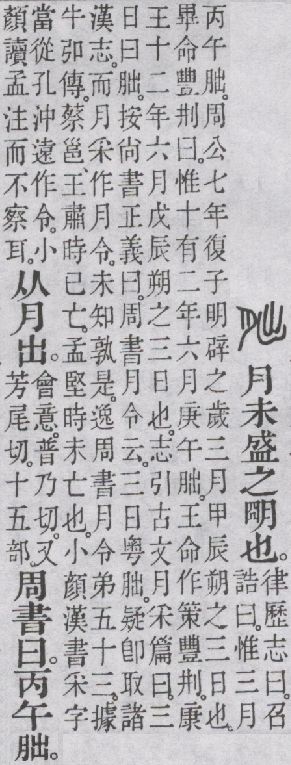 月未盛之朙也。律歷志曰。召
誥曰。惟三月
丙午朏。周公七年復子明辟之歲三月甲辰朔之三日也。
畢命豐荆曰。惟十有二年六月庚午朏。王命作策豐荆。康
王十二年六月戊辰朔之三日也。志引古文月采篇曰。三
日曰朏。按尙書正義曰。周書月令云。三日粵朏。疑卽取諸
漢志。而月采作月令。未知孰是。逸周書月令弟五十三。據
牛弘傳。蔡邕王肅時已亡。孟堅時未亡也。小顏漢書采字
當從孔沖遠作令。小
顏讀孟注而不察耳。从月出。會意。普乃切。又
芳尾切。十五部。周書曰。丙午朏。